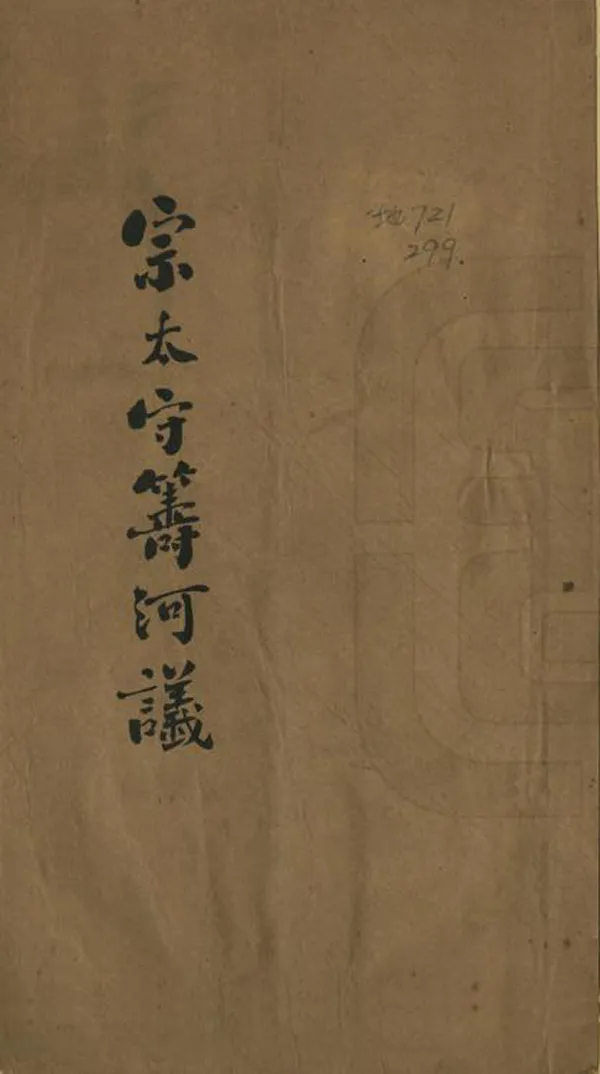 宗太守籌河議
地721
299.